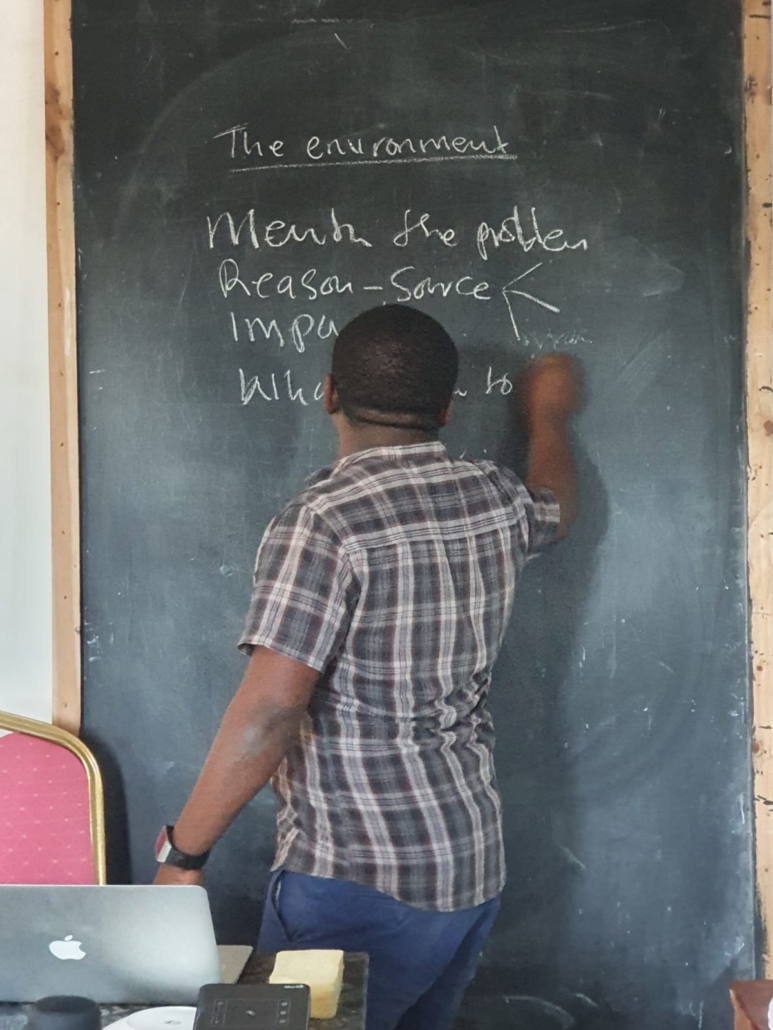 The environment
the problem
Reason - Source
Impa
Wha to